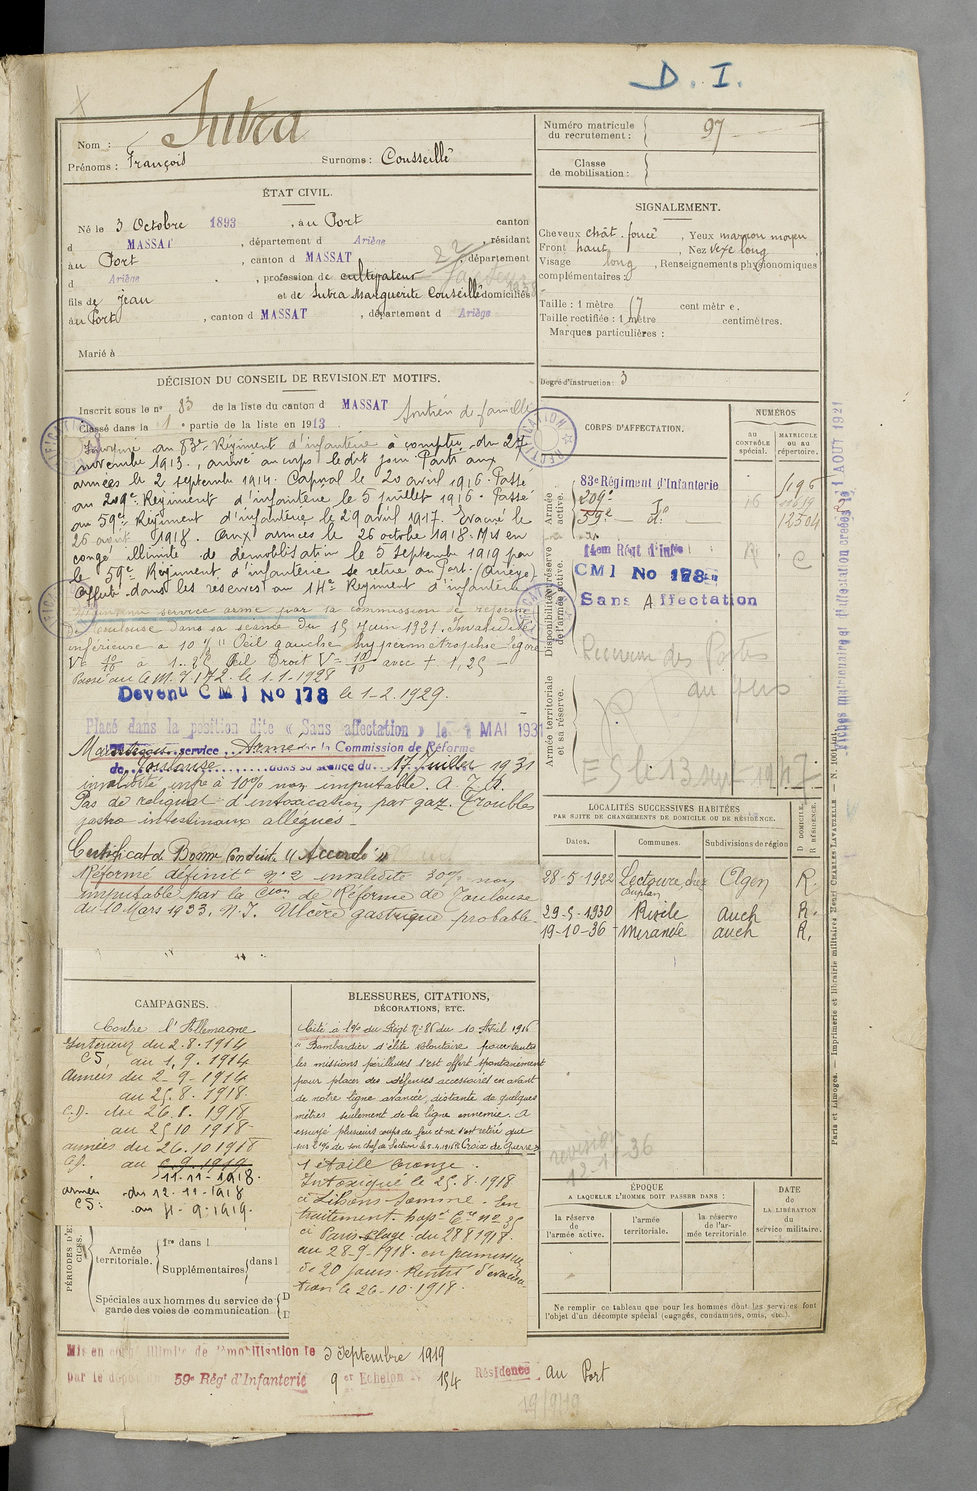 D. I.
Nom : Sutra
Prénoms : François Surnoms : Cousseillé
Numéro matricule du recrutement : 97
Classe de mobilisation :
ÉTAT CIVIL.
Né le 3 Octobre 1893, au Port canton
d MASSAT, département d Ariège, résidant
au Port, canton d MASSAT, département
d Ariège, profession de cultivateur
fils de Jean et de Sutra Marguerite Conseillé domiciliés
au Port, canton d MASSAT, département d Ariège
Marié à
SIGNALEMENT.
Cheveux chât. foncé, Yeux marron moyen
Front haut, Nez vexe long
Visage long, Renseignements physionomiques
complémentaires :
Taille : 1 mètre 67 centimètre.
Taille rectifiée : 1 mètre centimètres.
Marques particulières :
Degré d'instruction : 3
DÉCISION DU CONSEIL DE REVISION ET MOTIFS.
Inscrit sous le n° 83 de la liste du canton d MASSAT Soutien de famille
Classé dans la 1e partie de la liste en 1913
Incorporé au 83e Régiment d'infanterie à compter du 27
novembre 1913, arrivé au corps le dit jour. Parti aux
armées le 2 septembre 1914. Caporal le 20 avril 1916. Passé
au 209e Régiment d'infanterie le 5 juillet 1916. Passé
au 59e Régiment d'infanterie le 29 avril 1917. Evacué le
26 août 1918. Aux armées le 26 octobre 1918. Mis en
congé illimité de démobilisation le 5 septembre 1919 par
le 59e Régiment d'infanterie se retire au Port. (Ariège)
Affecté dans les réserves au 14e Régiment d'infanterie
Maintenu service armé par la commission de réforme
de Toulouse dans sa séance du 15 Juin 1921. Invalidité
inférieure à 10 % Oeil gauche hypermétrophie légère
Passé au C.M. 7/172 le 1-1-1928
Devenu C M I No 178 le 1-2-1929.
Placé dans la position dite « Sans affectation » le MAI 1931
Maintenu service Armé par la Commission de Réforme
de Toulouse dans sa séance du 17 Juillet 1931
invalidité infre à 10% non imputable.
Pas de reliquat d'intoxication par gaz. Troubles
gastro intestinaux allégués -
Certificat de Bonne Conduite "Accordé"
Réformé définitt n° 2 invalidité 30% non
imputable par la Cion de Réforme de Toulouse
du 10 Mars 1933. N.I. Ulcère gastrique probable
CORPS D'AFFECTATION.
NUMÉROS
AU CONTRÔLE spécial.
MATRICULE OU AU répertoire.
Armée active.
83e Régiment d'Infanterie
209e do
59e — do 12504
Disponibilité et réserve de l'armée active.
14em Régt d'Infie C
CMI No 178
Sans Affectation
Armée territoriale et sa réserve.
Receveur des Postes
LOCALITÉS SUCCESSIVES HABITÉES
PAR SUITE DE CHANGEMENTS DE DOMICILE OU DE RÉSIDENCE.
Dates. Communes. Subdivisions de région D DOMICILE. R RÉSIDENCE.
28-5-1922 Lectoure, chez Agen R.
29-5-1930 Riscle auch R.
19-10-36 Mirande auch R.
revision
12-11-36
CAMPAGNES.
Contre l'Allemagne
Intérieur du 2.8.1914
CS, au 1.9.1914
Armées du 2-9-1914
au 25.8.1918
C.D. du 26.8.1918
au 25.10.1918
armées du 26.10.1918
au 5.9.1919
11-11-1918.
armées du 12.11.1918
CS : au 4-9-1919.
BLESSURES, CITATIONS, DÉCORATIONS, ETC.
Cité à l'Ordre du Régt N° 86 du 10 Avril 1916
"Bombardier d'élite volontaire pour toutes
les missions périlleuses s'est offert spontanément
pour placer des défenses accessoires en avant
de notre ligne avancée, distante de quelques
mètres seulement de la ligne ennemie. A
essuyé plusieurs coups de feu et ne s'est retiré que
sur l'ordre de son chef de Section le 5.4.1916. Croix de Guerre
1 étoile bronze.
Intoxiqué le 25.8.1918
En
traitement hopt
à Paris-Plage du 28 8 1918
au 28-9-1918. en permission
de 20 jours. Rentré d'évacua-
tion le 26-10-1918.
PÉRIODES D'EXERCICES.
Armée territoriale.
1re dans l
Supplémentaires dans l
Spéciales aux hommes du service de
garde des voies de communication
ÉPOQUE
A LAQUELLE L'HOMME DOIT PASSER DANS :
la réserve de l'armée active.
l'armée territoriale.
la réserve de l'armée territoriale
DATE de LA LIBÉRATION du service militaire.
Ne remplir ce tableau que pour les hommes dont les services font
l'objet d'un décompte spécial (engagés, condamnés, omis, etc.).
Mis en congé illimité de démobilisation le 3 Septembre 1919
par le dépôt du 59e Régt d'Infanterie 9er Echelon N° 154 Résidence au Port
19/9/19
Paris et Limoges. — Imprimerie et librairie militaires Henri CHARLES-LAVAUZELLE
Fiches matriculaire et d'affectation créées le 1 AOUT 1921